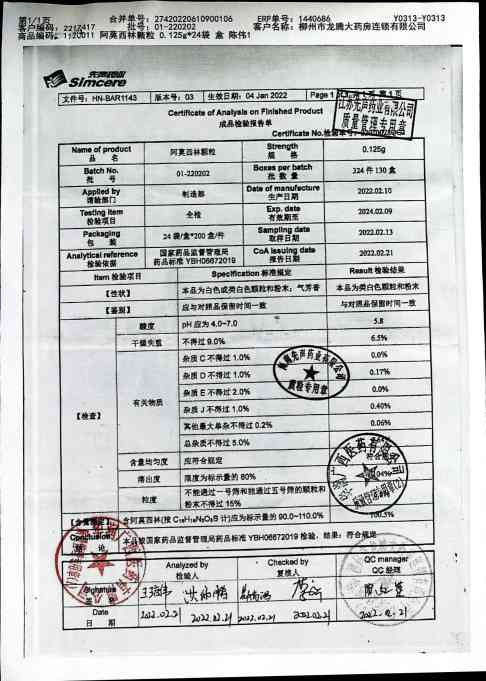 第1/1页 合并单号: 27420220610900106 ERP单号: 1440686 Y0313-Y0313
客户编码: 2212417 批号: 01-220202 客户名称: 柳州市龙腾大药房连锁有限公司
商品编码: 1120011 阿莫西林颗粒 0.125g*24袋 盒 陈伟1
先声药业
Simcere
文件号: HN-BAR1143 版本号: 03 生效日期: 04 Jan 2022 Page 1
江苏先声药业有限公司
质量管理专用章
Certificate of Analysis on Finished Product
成品检验报告单
Certificate No.检验单号:
Name of product 品 名 阿莫西林颗粒 Strength 规 格 0.125g
Batch No. 批 号 01-220202 Boxes per batch 批 数 量 324 件 130 盒
Applied by 请验部门 制造部 Date of manufacture 生产日期 2022.02.10
Testing item 检验项目 全检 Exp. date 有效期至 2024.02.09
Packaging 包 装 24 袋/盒*200 盒/件 Sampling date 取样日期 2022.02.13
Analytical reference 检验依据 国家药品监督管理局药品标准 YBH06672019 CoA issuing date 报告日期 2022.02.21
Item 检验项目 Specification 标准规定 Result 检验结果
【性状】 本品为白色或类白色颗粒和粉末; 气芳香 本品为类白色颗粒和粉末
【鉴别】 应与对照品保留时间一致 与对照品保留时间一致
【检查】
酸度 pH 应为 4.0~7.0 5.8
干燥失重 不得过 9.0% 6.5%
有关物质
杂质 C 不得过 1.0% 0.0%
杂质 D 不得过 1.0% 0.17%
杂质 E 不得过 2.0% 0.0%
杂质 J 不得过 1.0% 0.40%
其他最大单杂不得过 0.2% 0.06%
总杂质不得过 5.0%
质检专用章
含量均匀度 应符合规定 符合规定
溶出度 限度为标示量的 80%
粒度 不能通过一号筛和能通过五号筛的颗粒和粉末不得过 15%
【含量测定】 含阿莫西林(按 C₁₆H₁₉N₃O₅S 计)应为标示量的 90.0~110.0% 100.5%
Conclusion 结 论 本品按国家药品监督管理局药品标准 YBH06672019 检验, 结果: 符合规定
Analyzed by 检验人 Checked by 复核人 QC manager QC 经理
Signature 签 名
Date 日 期 2022.02.21 2022.02.21 2022.02.21 2022.02.21 2022.2.21